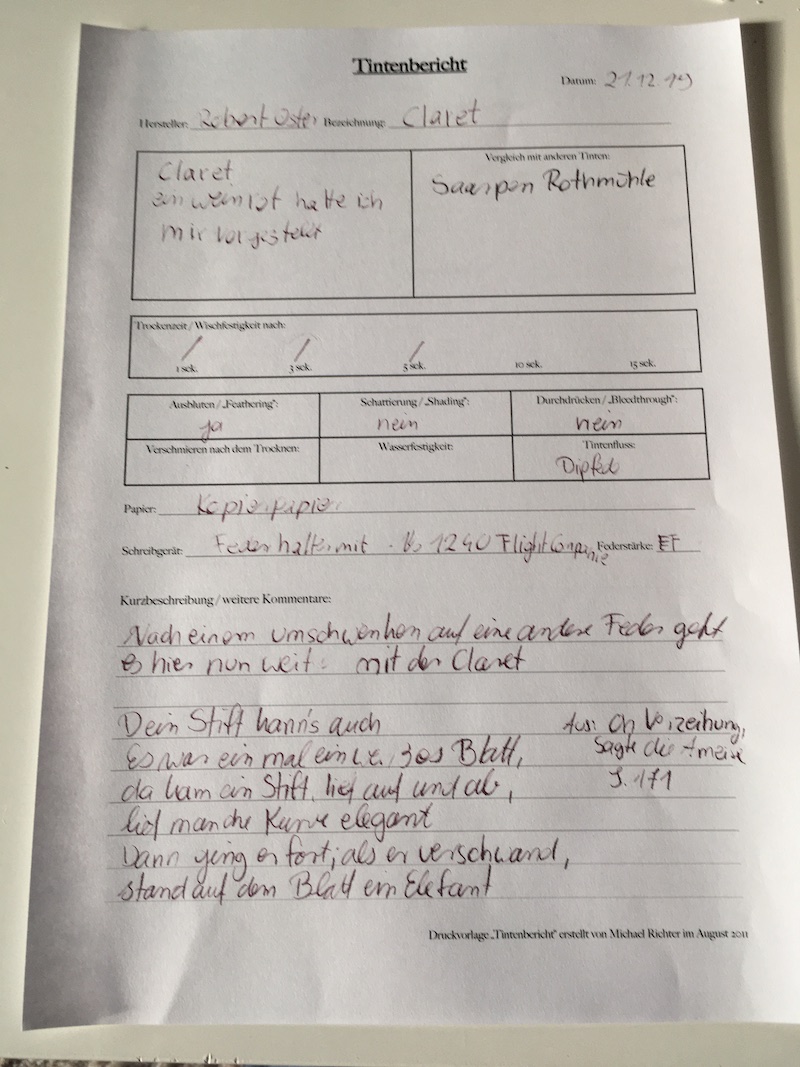 Tintenbericht
Datum: 21.12.19
Hersteller: Robert Oster Bezeichnung: Claret
Claret
ein weinrot hatte ich
mir vorgestellt
Vergleich mit anderen Tinten:
Saarpen Rothmühle
Trockenzeit / Wischfestigkeit nach:
1 sek. 3 sek. 5 sek. 10 sek. 15 sek.
Ausbluten / „Feathering": Schattierung / „Shading": Durchdrücken / „Bleedthrough":
ja nein nein
Verschmieren nach dem Trocknen: Wasserfestigkeit: Tintenfluss:
Papier: Kopierpapier
Schreibgerät: Federhalter mit 1240 Flight Companie Federstärke: EF
Kurzbeschreibung / weitere Kommentare:
Nach einem umschwenken auf eine andere Feder geht
es hier nun weit: mit der Claret
Dein Stift kann's auch
Es war ein mal ein Blatt,
da kam ein Stift, lief auf und ab,
lief manche Kurve elegant
Dann ging er fort; als er verschwand,
stand auf dem Blatt ein Elefant
Aus: Oh Verzeihung,
sagte die Ameise
S. 171
Druckvorlage „Tintenbericht" erstellt von Michael Richter im August 2011